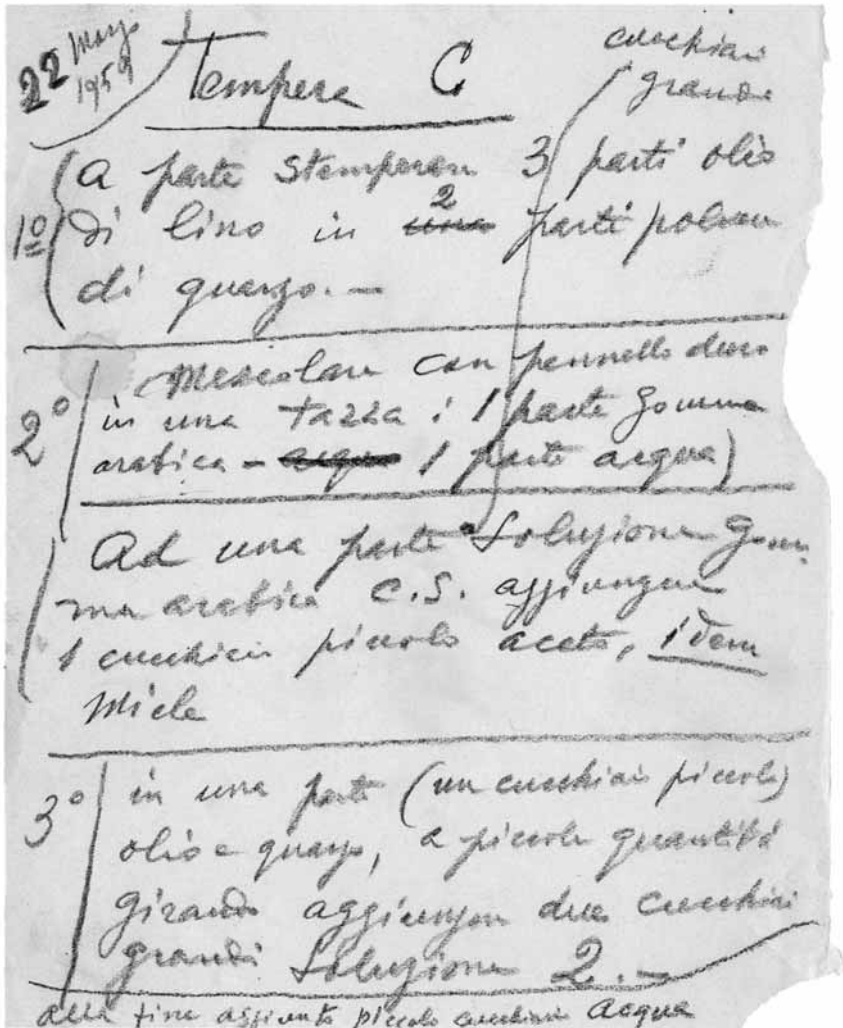 22 Marzo
1959
Tempera C
cucchiai
grandi
1º
a parte stemperare 3 parti olio
di lino in una 2 parti polvere
di quarzo. —
2º
Mescolare con pennello duro
in una tazza : 1 parte gomma
arabica - acqua 1 parte acqua)
Ad una parte Soluzione Gom-
ma arabica C.S. aggiungere
1 cucchiaio piccolo aceto, idem
Miele
3º
in una parte (un cucchiaio piccolo)
olio e quarzo, a piccole quantità
girando aggiungere due cucchiai
grandi Soluzione 2. —
alla fine aggiunto piccolo cucchiaio acqua